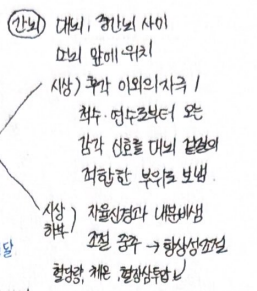 간뇌 대뇌, 중간뇌 사이
소뇌 앞에 위치
시상) 후각 이외의 자극 /
척수·연수로부터 오는
감각 신호를 대뇌 겉질의
적합한 부위로 보냄.
시상하부) 자율신경과 내분비샘
조절 중추 → 항상성 조절
혈당량, 체온, 혈장삼투압
달